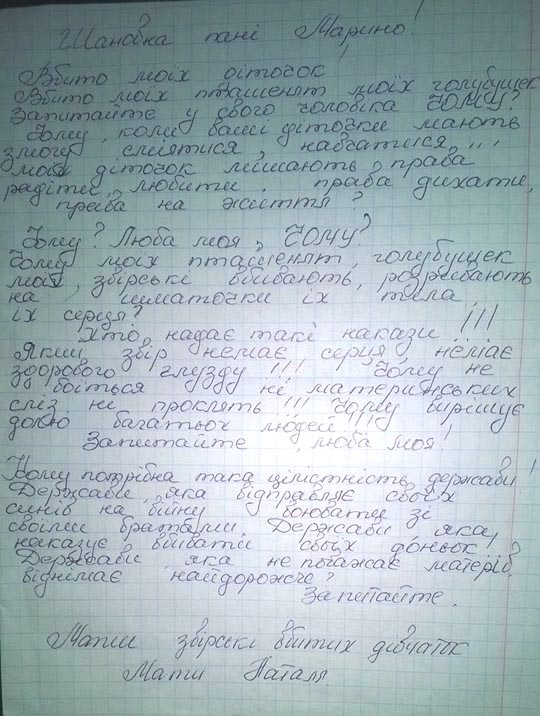 Шановна пані Марино!
Вбито моїх діточок,
Вбито моїх пташенят, моїх голубушек
Запитайте у свого чоловіка ЧОМУ?
Чому, коли ваші діточки мають
змогу сміятися, навчатися,,,
моїх діточок лишають права
радіти, любити, права дихати,
права на життя?
Чому? Люба моя, ЧОМУ?
Чому моїх пташенят, голубушек
моїх, звірські вбивають, розривають
на шматочки їх тела,
їх серця?
Хто надає такі накази!!!
Який звір немає серця, неміає
здорового глузду!!! Чому не
боїться ні материнських
сліз, не проклять!!! Чому вірішує
долю багатьох людей!!!
Запитайте, люба моя!
Кому потрібна така цілістність держави!
Держави, яка відправляє своїх
синів на війну воювати зі
своїми братами. Держави, яка
наказує вбивати своїх доньок?
Держави, яка не поважає матерів,
віднімає найдорожче?
Запитайте.
Мати звірскі вбитих дівчаток
Мати Наталя.